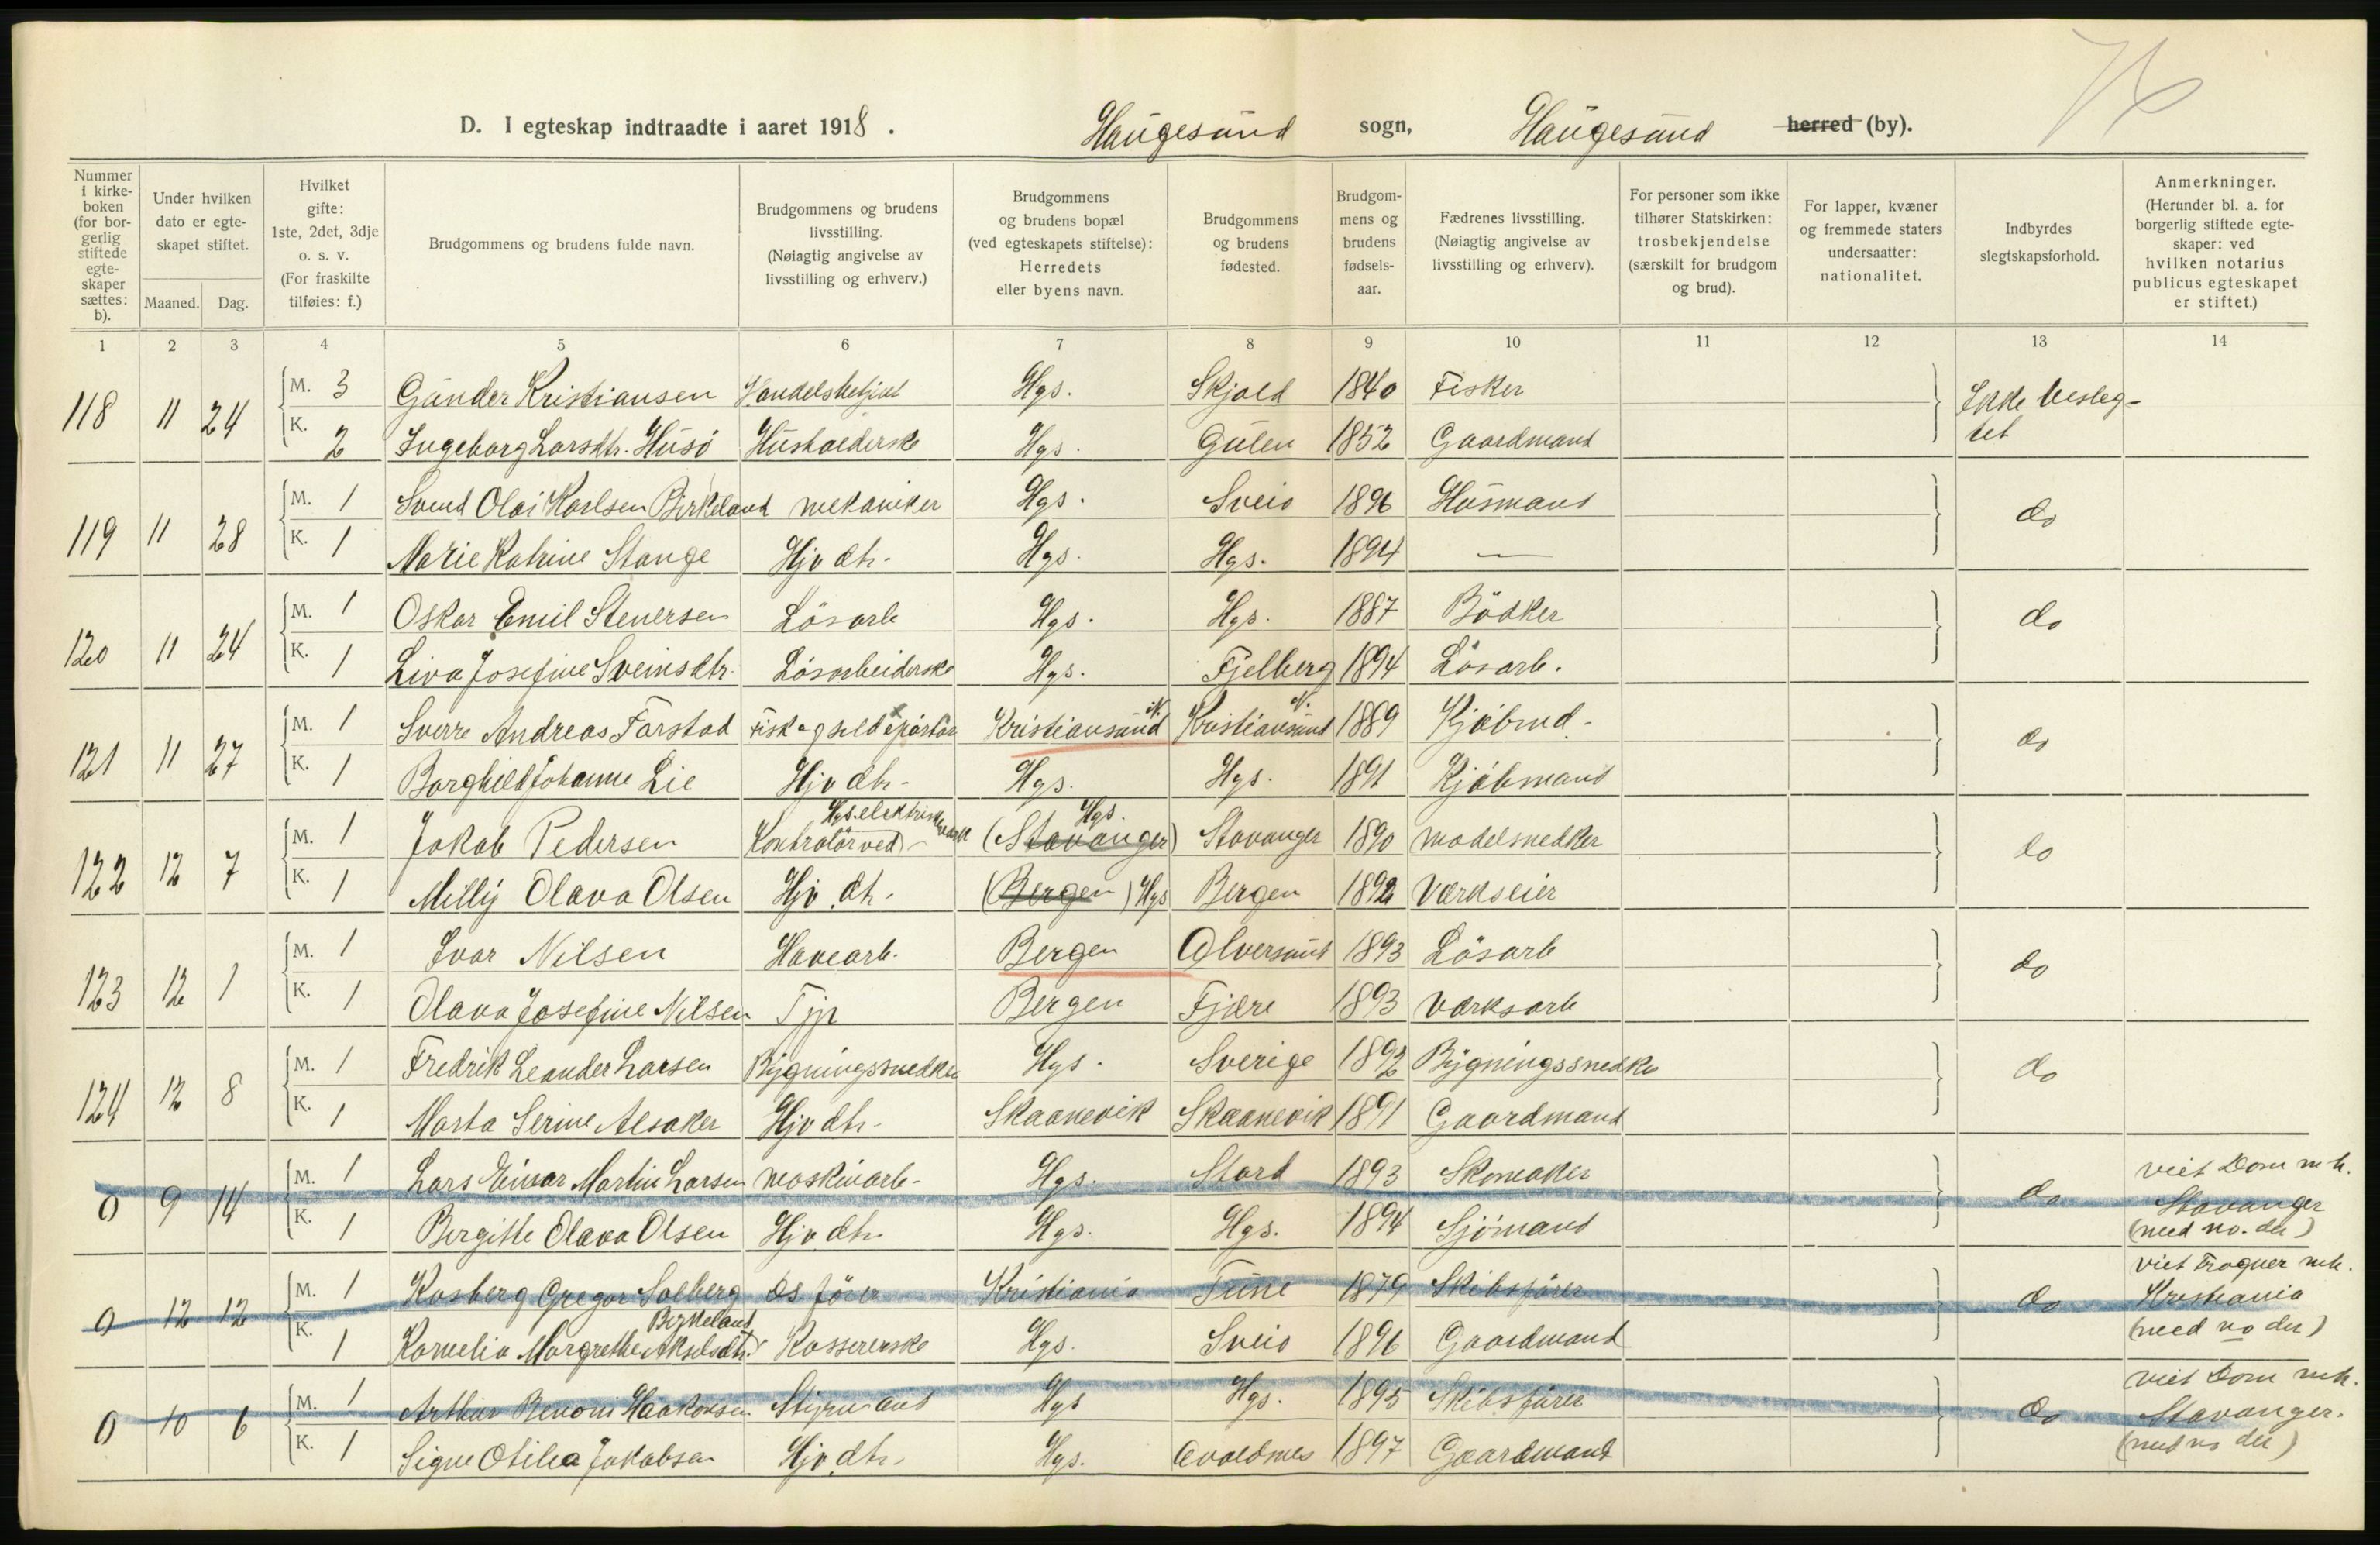 76
D. I egteskap indtraadte i aaret 1918. Haugesund sogn, Haugesund herred (by).
Nummer i kirkeboken (for borgerlig stiftede egteskaper sættes: b).
Under hvilken dato er egteskapet stiftet.
Maaned. Dag.
Hvilket gifte: 1ste, 2det, 3dje o. s. v. (For fraskilte tilføies: f.)
Brudgommens og brudens fulde navn.
Brudgommens og brudens livsstilling. (Nøiagtig angivelse av livsstilling og erhverv.)
Brudgommens og brudens bopæl (ved egteskapets stiftelse): Herredets eller byens navn.
Brudgommens og brudens fødested.
Brudgommens og brudens fødselsaar.
Fædrenes livsstilling. (Nøiagtig angivelse av livsstilling og erhverv).
For personer som ikke tilhører Statskirken: trosbekjendelse (særskilt for brudgom og brud).
For lapper, kvæner og fremmede staters undersaatter: nationalitet.
Indbyrdes slegtskapsforhold.
Anmerkninger. (Herunder bl. a. for borgerlig stiftede egteskaper: ved hvilken notarius publicus egteskapet er stiftet.)
1 2 3 4 5 6 7 8 9 10 11 12 13 14
118 11 24 M. 3 Gunder Kristiansen Handelsbetjent Hgs. Skjold 1840 Fisker Ikke besleg-
K. 2 Ingeborg Larsdtr. Husö Husholderske Hgs. Gulen 1852 Gaardmand tet
119 11 28 M. 1 Svend Olai Karlsen Birkeland mekaniker Hgs. Sveio 1896 Husmand do
K. 1 Marie Katrine Stange Hjv dtr. Hgs. Hgs. 1894 —
120 11 24 M. 1 Oskar Emil Stenersen Lösarb Hgs. Hgs. 1887 Bödker do
K. 1 Liva Josefine Sveinsdtr. Lösarbeiderske Hgs. Fjelberg 1894 Lösarb.
121 11 27 M. 1 Sverre Andreas Farstad Fisk og sild Kristiansund N. Kristiansund N. 1889 Kjöbmd. do
K. 1 Borghild Johanne Lie Hjv dtr. Hgs. Hgs. 1891 Kjöbmand
122 12 7 M. 1 Jakob Pedersen Kontrolör ved Hgs. elektriskverk (Stavanger) Hgs. Stavanger 1890 modelsnedker do
K. 1 Milly Olava Olsen Hjv. dtr. (Bergen) Hgs Bergen 1892 Værkseier
123 12 1 M. 1 Ivar Nilsen Havearb. Bergen Alversund 1893 Lösarb do
K. 1 Olava Josefine Nilsen Tjp Bergen Fjære 1893 Værksarb
124 12 8 M. 1 Fredrik Leander Larsen Bygningssnedker Hgs. Sverige 1892 Bygningssnedker do
K. 1 Marta Serine Alsaker Hjv dtr. Skaanevik Skaanevik 1891 Gaardmand
0 9 14 M. 1 Lars Einar Martin Larsen maskinarb. Hgs. Stord 1893 Skomaker do viet Dom mh. Stavanger
K. 1 Bergitte Olava Olsen Hjv. dtr. Hgs. Hgs. 1894 Sjömand (med no. der)
0 12 12 M. 1 Kasberg Gregor Solberg DS förer Kristiania Tune 1879 Skibsförer do viet Frogner mh. Kristiania
K. 1 Kornelia Margrethe Akselsdtr. Birkeland Kassererske Hgs. Sveio 1896 Gaardmand (med no der)
0 10 6 M. 1 Arthur Benoni Haakonsen Styrmand Hgs Hgs. 1895 Skibsförer do viet Dom mh. Stavanger.
K. 1 Signe Otilia Jakobsen Hjv. dtr. Hgs. Avaldsnes 1897 Gaardmand (med no der)